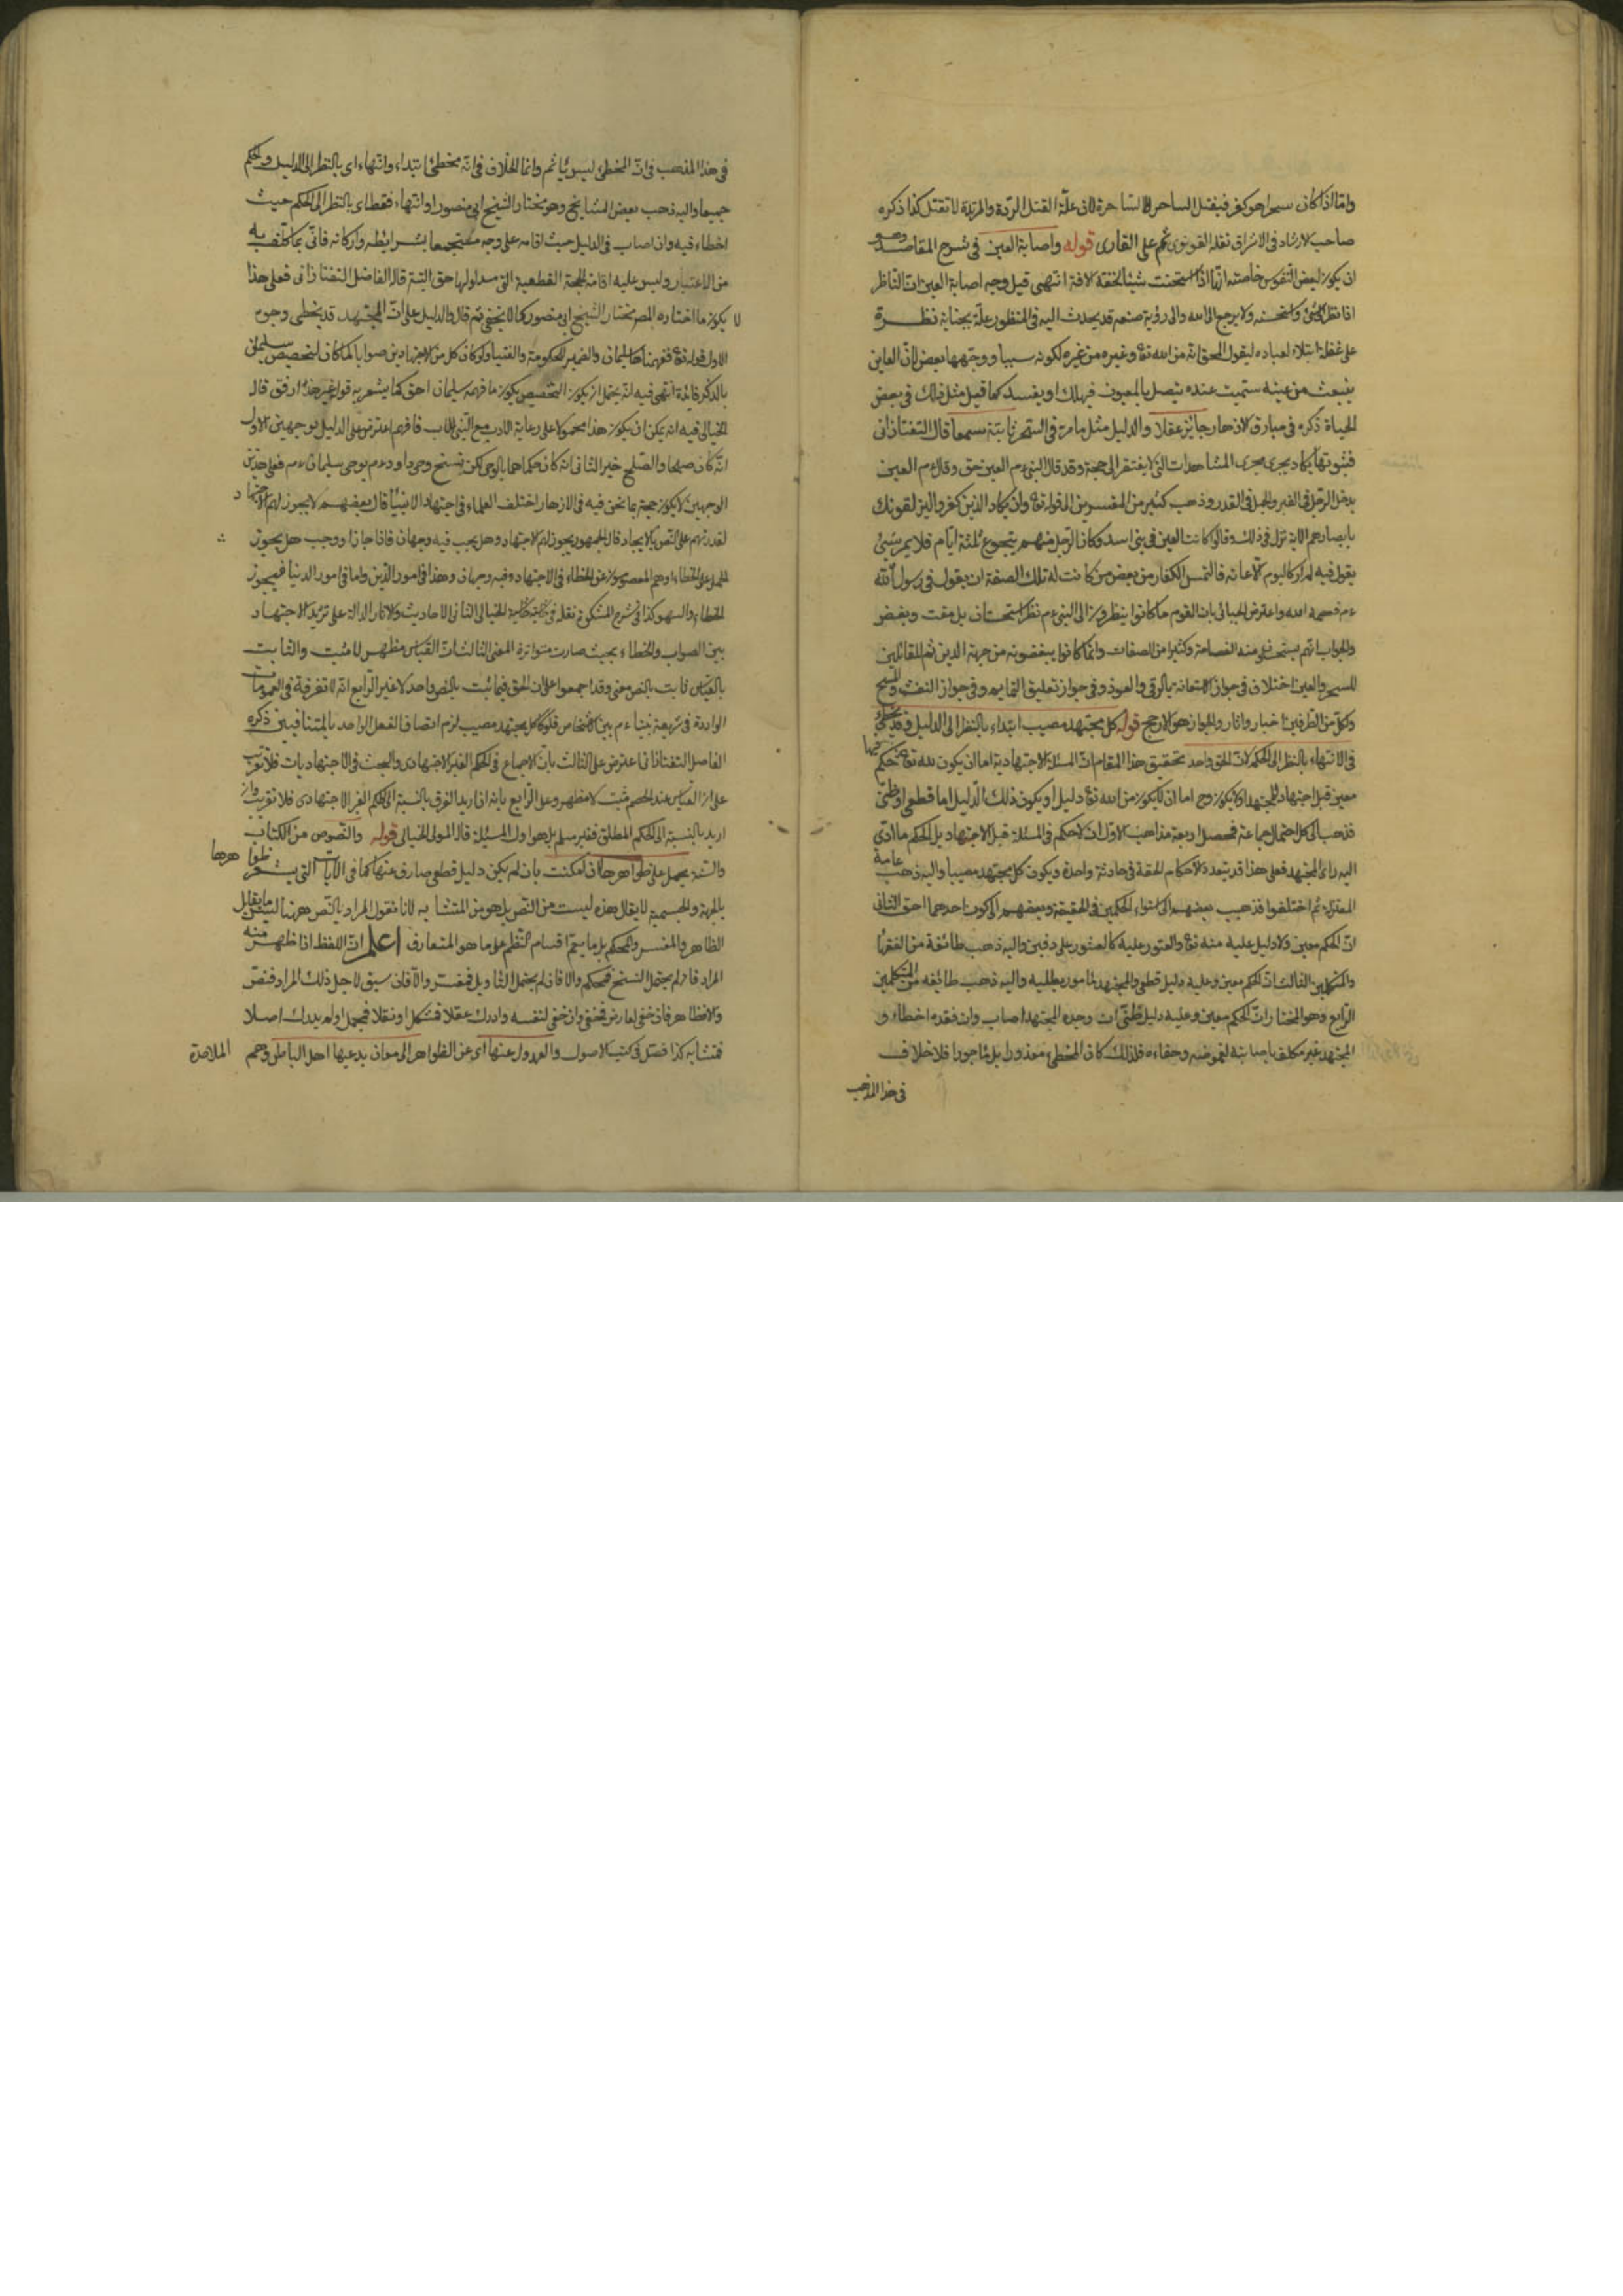 واما اذا كان سحرا هو كفر فيقتل الساحر لا الساحرة لان علة القتل الردة والمرتدة لا تقتل كذا ذكره
صاحب الارشاد فى الاشراق نقله القونوى ثم على القارى قوله واصابة العين فى شرح المقاصد وهو
ان يكون لبعض النفوس خاصته انها اذا استحسنت شيئا لحقته الافة انتهى قيل وجه اصابة العين ان الناظر
اذا نظر الى شئ واستحسنه ولا يرجع الى الله والى رؤية صنعه قد يحدث الله فى المنظور علة بجناية نظره
على غفلة ابتلاء لعباده ليقول المحق انه من الله تع وغيره من غيره لكونه سببا ووجهها بعض لان العاين
ينبعث من عينه ستميت عنده يتصل بالمعيون فيهلك او يفسد كما قيل مثل ذلك فى بعض
الحياة ذكره فى مبارق الازهار جائز عقلا والدليل مثل ما مر فى السحر ثابتة سمعا قال التفتازانى
فثبوتها يكاد يجرى مجرى المشاهدات التى لا يفتقر الى حجة وقد قال النبى عم العين حق وقال عم العين
يدخل الرجل فى القبر والجمل فى القدر وذهب كثير من المفسرين الى قوله تع وان يكاد الذين كفروا ليزلقونك
بابصارهم الاية نزل فى ذلك وقالوا كانت العين فى بنى اسد وكان الرجل منهم يتجوع ثلثة ايام فلا يمر بشئ
يقول فيه لم ار كاليوم الا عانه فالتمس الكفار من بعض من كانت له تلك الصفة ان يقول فى رسول الله
عم فعصمه الله واعترض الجبائى بان القوم ما كانوا ينظرون الى النبى عم نظر استحسان بل مقت وبغض
والجواب انهم يستحسنون منه الفصاحة وكثيرا من الصفات وانما كانوا يبغضونه من جهة الدين ثم للقائلين
للسحر والعين اختلاف فى جواز الاستعانة بالرقى والعوذ وفى جواز تعليق التمايم وفى جواز النفث والمسح
ولكل من الطرفين اخبار واثار والجواز هو الارجح قوله كل مجتهد مصيب ابتداء بالنظر الى الدليل وقد يخطئ
فى الانتهاء بالنظر الى الحكم لان الحق واحد تحقيق هذا المقام ان المسئلة الاجتهادية اما ان يكون لله تع فيها حكم
معين قبل اجتهاد المجتهد او لا يكون وح اما ان لا يكون من الله تع دليل او يكون وذلك الدليل اما قطعى او ظنى
فذهب الى كل احتمال جماعة فحصل اربعة مذاهب الاول ان لا حكم فى المسئلة قبل الاجتهاد بل الحكم ما ادى
اليه رأى المجتهد فعلى هذا قد يتعدد الاحكام الحقة فى حادثة واحدة ويكون كل مجتهد مصيبا واليه ذهب عامة
المعتزلة ثم اختلفوا فذهب بعضهم الى استواء الحكمين فى الحقيقة وبعضهم الى كون احدهما احق الثانى
ان الحكم معين ولا دليل عليه منه تع والعثور عليه كالعثور على دفين واليه ذهب طائفة من الفقهاء
والمتكلمين الثالث ان الحكم معين وعليه دليل قطعى والمجتهد مأمور بطلبه واليه ذهب طائفه من المتكلمين
الرابع وهو المختار ان الحكم معين وعليه دليل ظنى ان وجده المجتهد اصاب وان فقده اخطاء و
المجتهد غير مكلف باصابته لغموضه وخفاءه فلذلك كان المخطئ معذورا بل مأجورا فلا خلاف
فى هذا المذهب
فى هذا المذهب فى ان المخطئ ليس بآثم وانما الخلاف فى انه مخطئ ابتداء وانتهاء اى بالنظر الى الدليل والحكم
جميعا واليه ذهب بعض المشايخ وهو مختار الشيخ ابى منصور او انتهاء فقط اى بالنظر الى الحكم حيث
اخطاء فيه وان اصاب فى الدليل حيث اقامه على وجه مستجمعا بشرائطه واركانه فاتى بما كلف به
من الاعتبار وليس عليه اقامة الحجة القطعية التى مدلولها حق البتة قال الفاضل التفتازانى فعلى هذا
لا يكون ما اختاره المص مختار الشيخ ابى منصور كما لا يخفى ثم قال والدليل على ان المجتهد قد يخطى وجوه
الاول قوله تع ففهمناها سليمان والضمير للحكومة والفتيا ولو كان كل من الاجتهادين صوابا لما كان لتخصيص سليمان
بالذكر فائدة انتهى فيه انه يحتمل ان يكون التخصيص بكون ما فهمه سليمان احق كما يشعر به قوله غير هذا ارفق قال
الخيالى فيه انه يمكن ان يكون هذا محمولا على رعاية الادب مع النبى الاب فافهم اعترض على الدليل بوجهين الاول
انه كان صلحا والصلح خير الثانى انه كان حكماهما بالوحى لكن نسخ وحى داود عم بوحى سليمان عم فعلى هذين
الوجهين لا يكون حجة بما نحن فيه فى الازهار اختلف العلماء فى اجتهاد الانبيأ قال بعضهم لا يجوز لهم الاجتهاد
لقدرتهم على النص بالايحاء وقال الجمهور يجوز لهم الاجتهاد وهل يجب فيه وجهان فاذا جاز او وجب هل يجوز
عليهم الخطاء او هم المعصومون عن الخطاء فى الاجتهاد وفيه وجهان وهذا فى امور الدين واما فى امور الدنيا فيجوز
الخطاء والسهو كذا فى شرح المشكوة نقله فى حاشية الخيالى الثانى الاحاديث والاثار الدالة على ترديد الاجتهاد
بين الصواب والخطاء بحيث صارت متواترة المعنى الثالث ان القياس مظهر لا مثبت والثابت
بالقياس ثابت بالنص معنى وقد اجمعوا على ان الحق فيما ثبت بالنص واحد لا غير الرابع انه لا تفرقة فى العمومات
الواردة فى شريعة نبينا عم بين الاشخاص فلو كان كل مجتهد مصيب لزم اتصاف الفعل الواحد بالمتنافيين ذكره
الفاضل التفتازانى اعترض على الثالث بان الاجماع فى الحكم الغير الاجتهادى والبحث فى الاجتهاديات فلا تقريب
على ان القياس عند الخصم مثبت لا مظهر وعلى الرابع بانه ان اريد الفرق بالنسبة الى الحكم الغير الاجتهادى فلا تقريب وان
اريد بالنسبة الى الحكم المطلق فغير مسلم بل هو اول المسئلة قاله المولى الخيالى قوله والنصوص من الكتاب
والسنة يحمل على ظواهرها ان امكنت بان لم يكن دليل قطعى صارف عنها كما فى الآيات التى يشعر ظواهرها
بالجهة والجسمية لا يقال هذه ليست من النص بل هو من المتشابه لانا نقول المراد بالنص ههنا ليس ما يقابل
الظاهر والمفسر والمحكم بل ما يعم اقسام النظم على ما هو المتعارف اعلم ان اللفظ اذا ظهر منه
المراد فان لم يحتمل النسخ فمحكم والا فان لم يحتمل التاويل فمفسر والا فان سيق لاجل ذلك المراد فنص
والا فظاهر فان خفى لعارض فخفى وان خفى لنفسه وادرك عقلا فمشكل او نقلا فمجمل او لم يدرك اصلا
فمتشابه كذا فصل فى كتب الاصول والعدول عنها اى عن الظواهر الى معان يدعيها اهل الباطن وهم الملاحدة